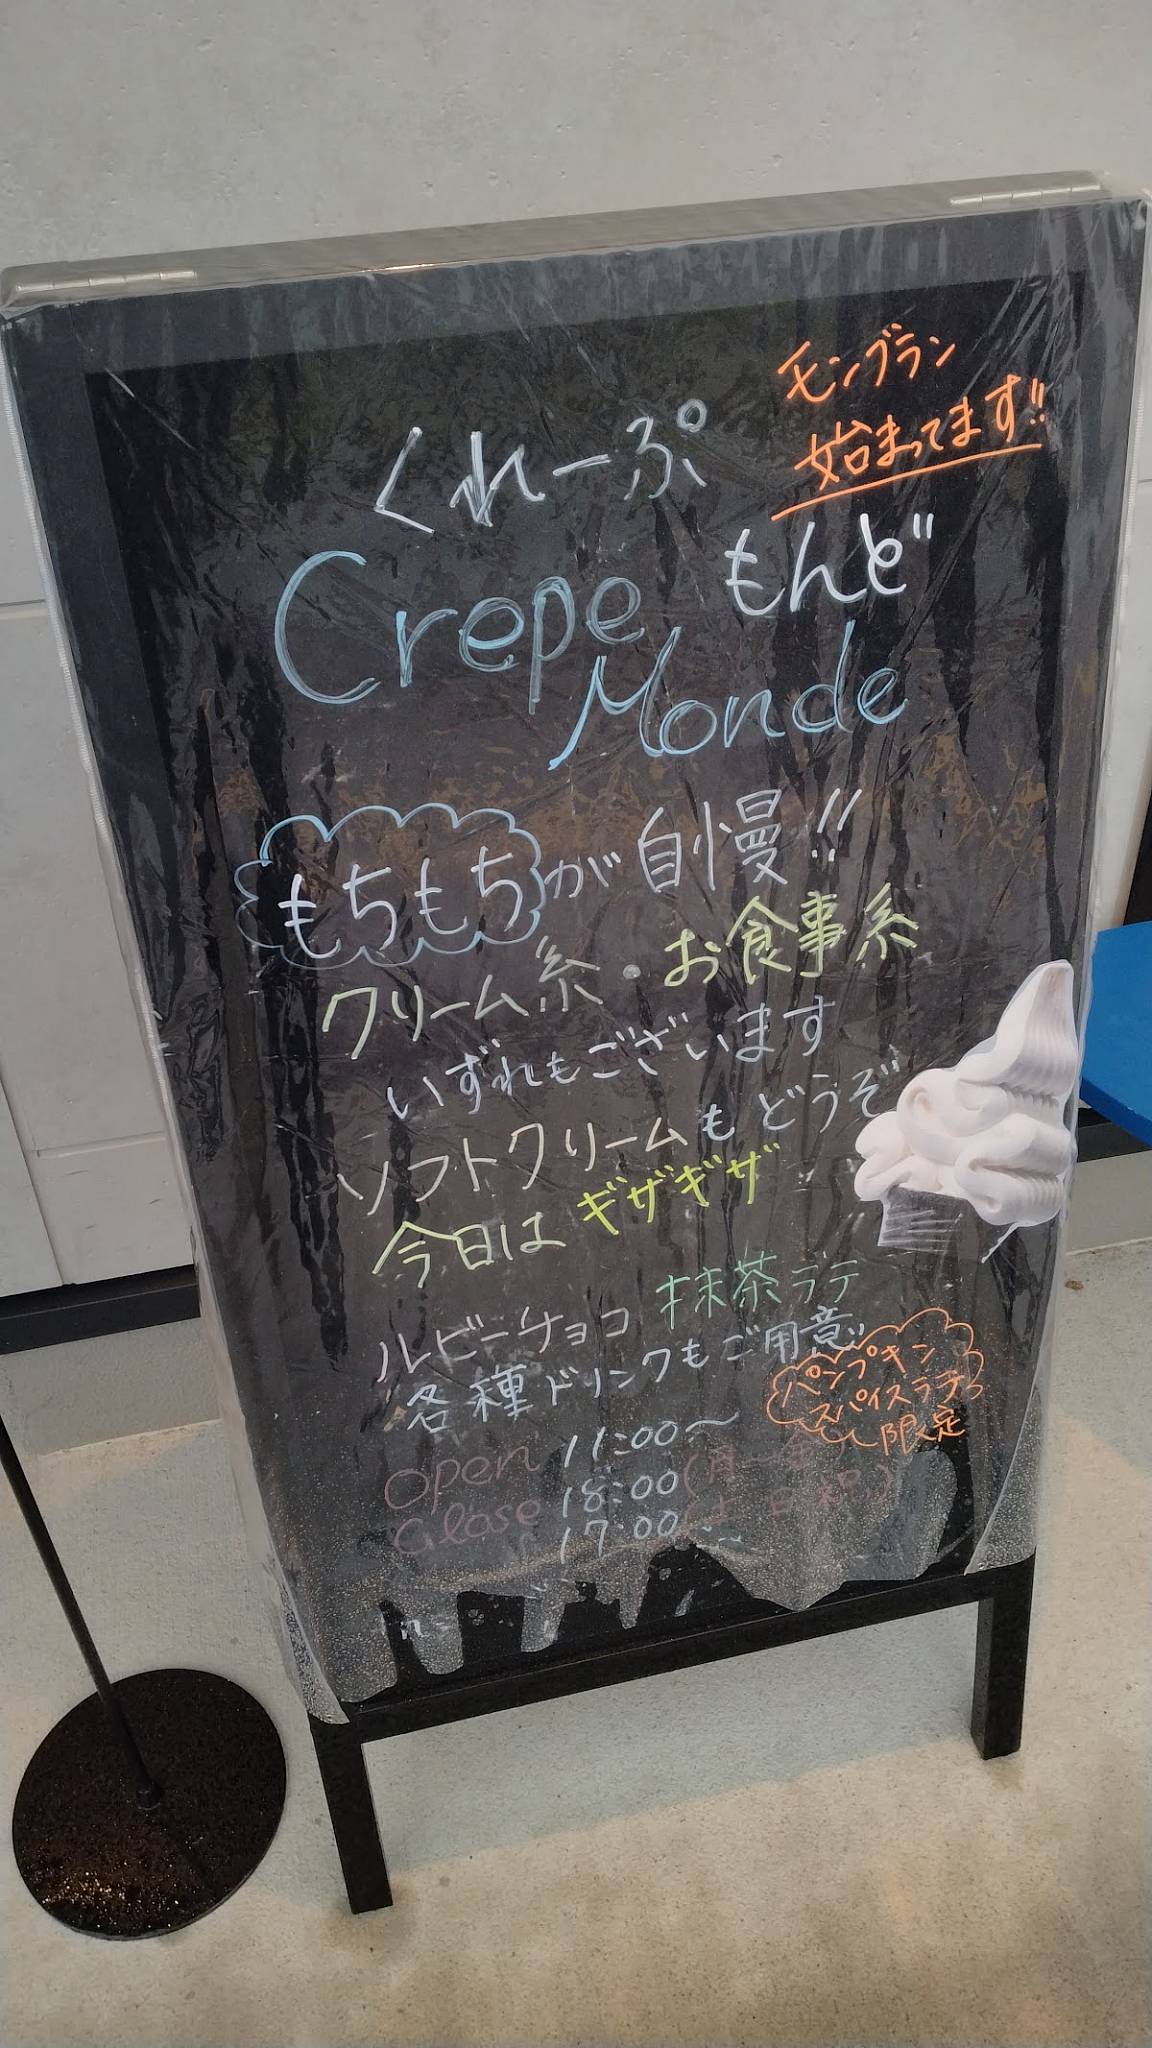 モンブラン
始まってます!!
くれーぷ
もんど
Crepe
Monde
もちもちが自慢!!
クリーム系・お食事系
いずれもございます
ソフトクリームもどうぞ
今日はギザギザ
ルビーチョコ 抹茶ラテ
各種ドリンクもご用意!!
パンプキン
スパイスラテ
限定
Open 11:00〜
Close 18:00(月〜金)
17:00(土日祝)